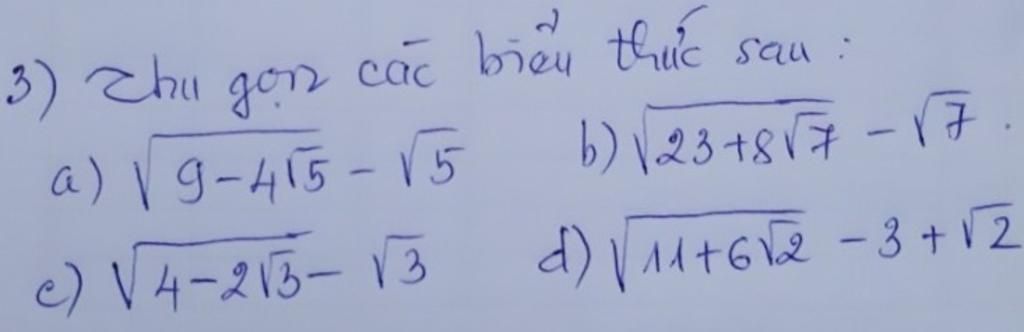 3) Thu gọn các biểu thức sau :
a) √(9-4√5) - √5 b) √(23+8√7) - √7 .
c) √(4-2√3) - √3 d) √(11+6√2) - 3 + √2